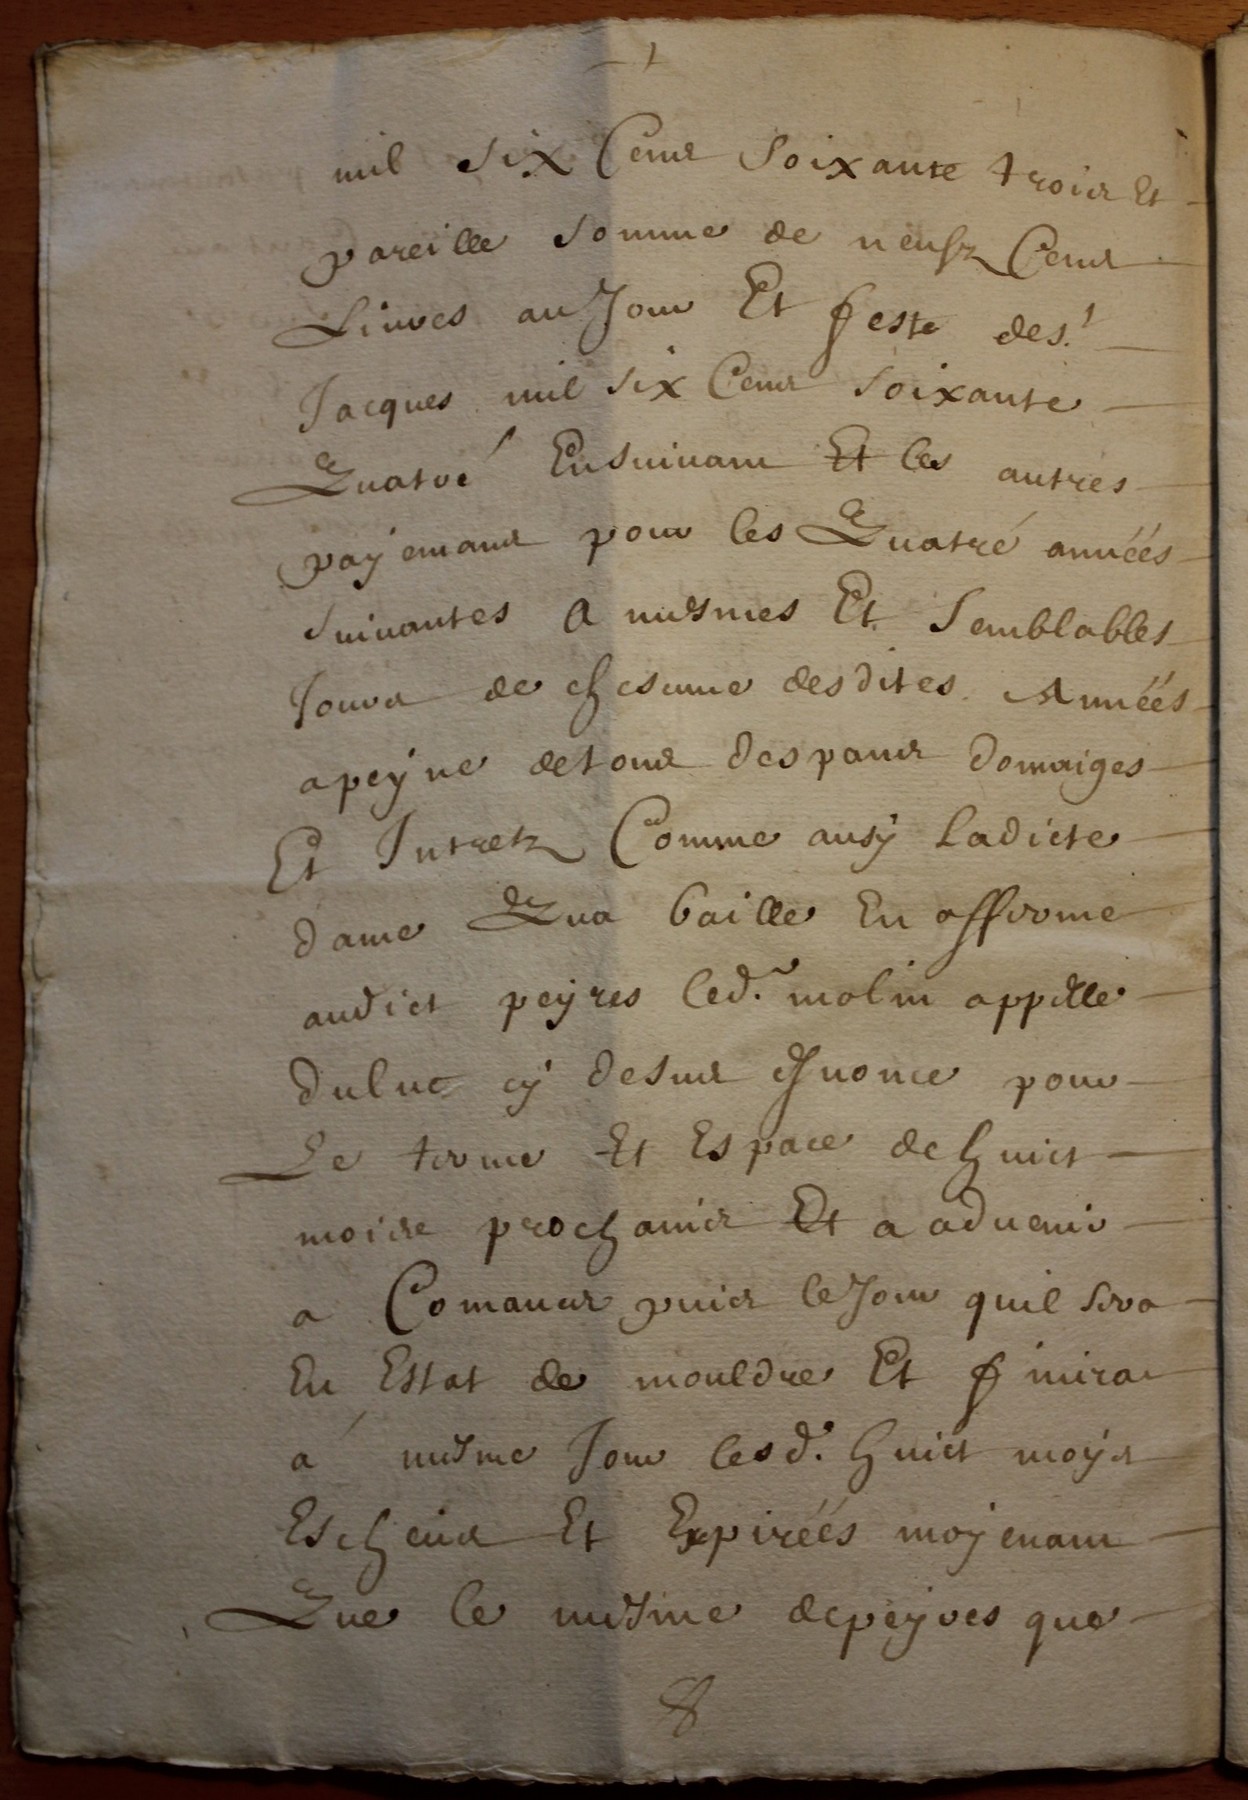 mil six Cens soixante trois Et
pareille somme de neufz Cens
Livres au Jour Et feste de S.t
Jacques mil six Cens soixante
Quatré Ensuivant Et les autres
payemans pour les Quatré années
suivantes A mesmes Et Semblables
Jours de chescune desdites Années
apeyne detous despans domaiges
Et Intretz Comme ausy Ladicte
dame Qua baille En afferme
audict peyres led.t molin appelle
duluc cy desus Enonce pour
Le terme Et Espace de huict
moise prochains Et a advenir
a Comancer puis le Jour quil sera
En Estat de mouldre Et finira
á mesme Jour lesd. huict moys
Escheus Et Expiréés moyenant
Que le mesme depeyres que
8